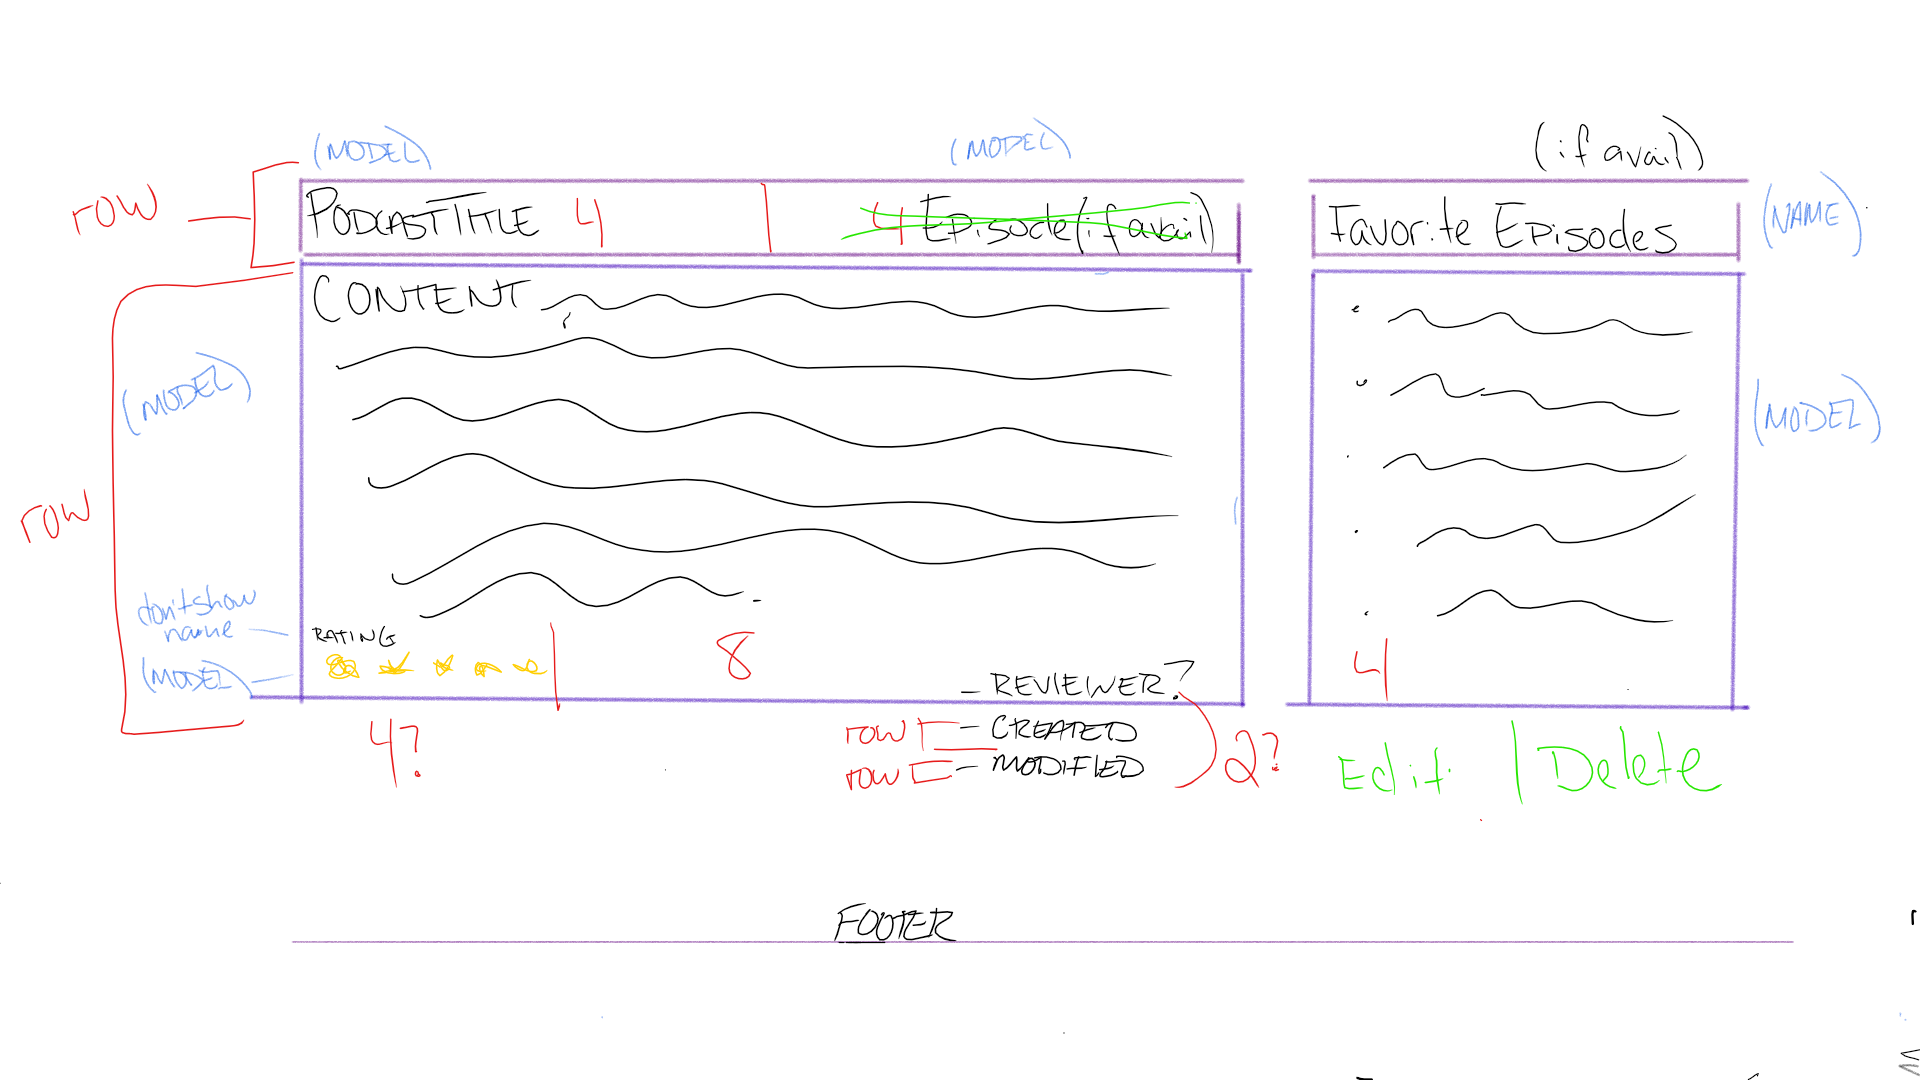 (MODEL)
(MODEL)
(if avail)
row
PODCAST TITLE 4
4 Episode (if avail)
Favorite Episodes
(NAME)
CONTENT
(MODEL)
(MODEL)
row
don't show
name
RATING
(MODEL)
8
4
- REVIEWER?
4?
row - CREATED
row - MODIFIED
2?
Edit | Delete
FOOTER